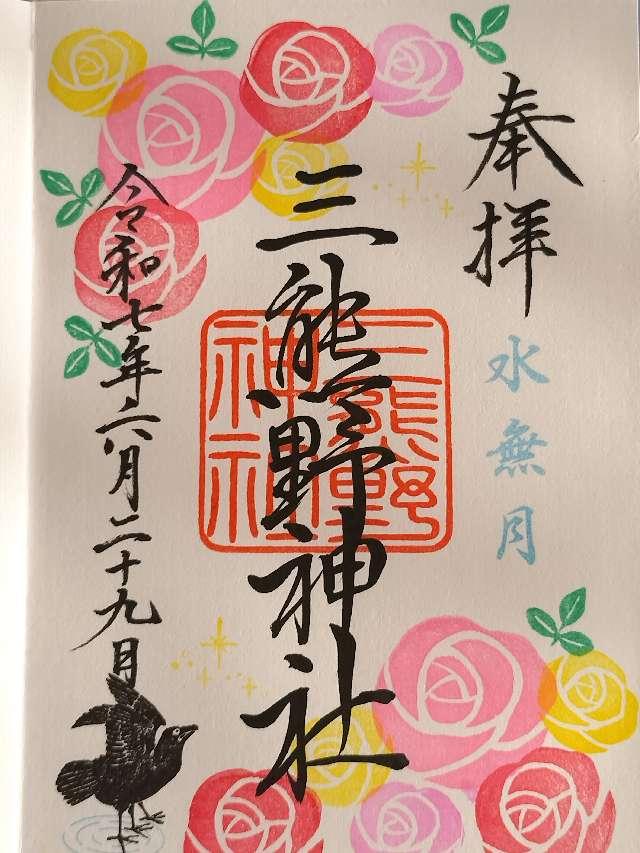 奉拝
水無月
三熊野神社
三熊野神社
令和七年六月二十九日